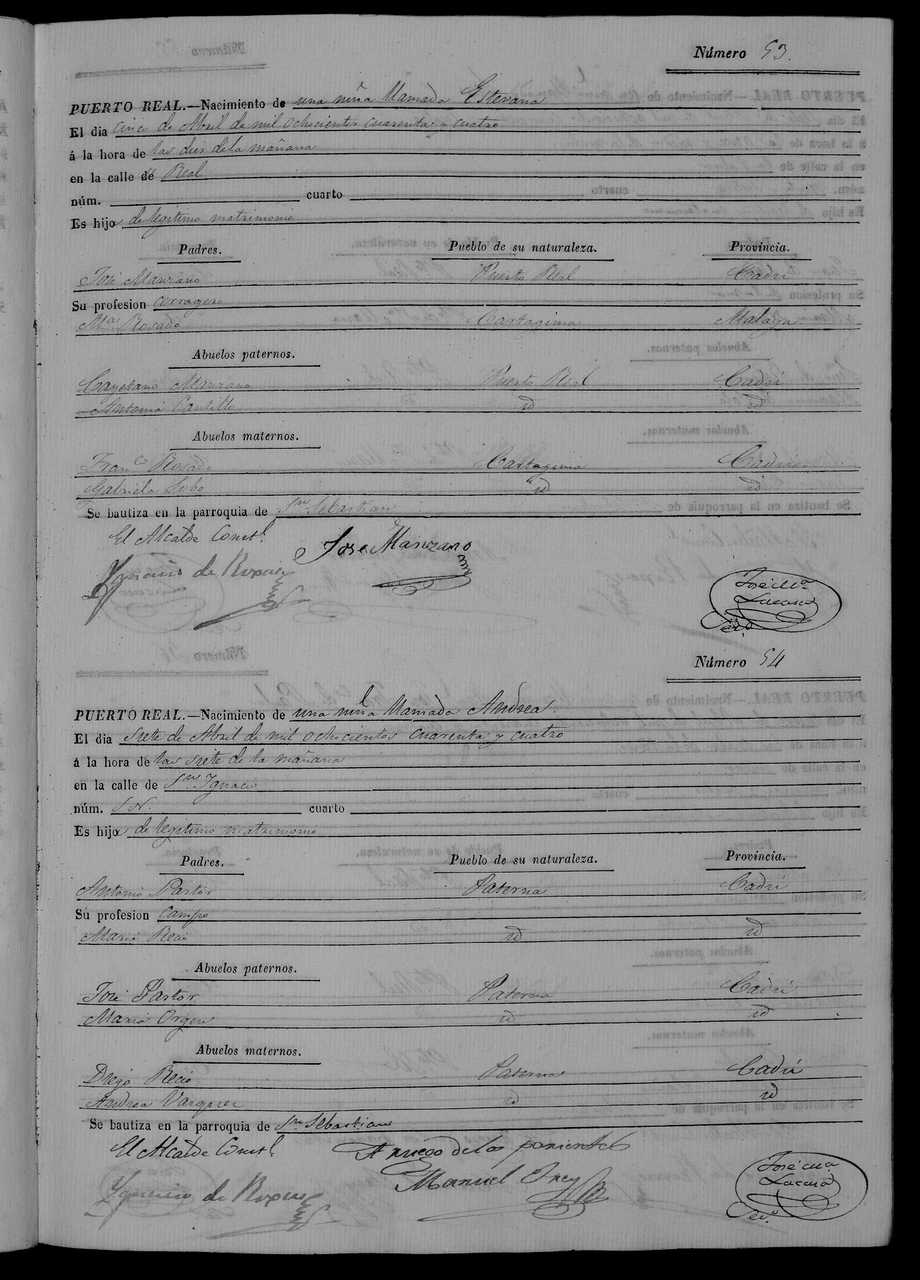 Número 53.
PUERTO REAL.—Nacimiento de una niña llamada Estevana
El dia cinco de Abril de mil ochocientos cuarenta y cuatro
á la hora de las dies de la mañana
en la calle de Real
núm. cuarto
Es hijo de legitimo matrimonio
Padres. Pueblo de su naturaleza. Provincia.
José Manzano Puerto Real Cadiz
Su profesion arragero
Mª Rosado Cartagima Malaga
Abuelos paternos.
Cayetano Manzano Puerto Real Cadiz
Antonia Cantillo id id
Abuelos maternos.
Franco Rosado Cartagima Cadiz
Gabriela Lobo id id
Se bautiza en la parroquia de Sn Sebastian
El Alcalde Constl.
Jose Manzano
Ygnacio de
José Mª
Lacaza
Srio
Número 54
PUERTO REAL.—Nacimiento de una niña llamada Andrea.
El dia siete de Abril de mil ochocientos cuarenta y cuatro
á la hora de las siete de la mañana
en la calle de Sn Ignacio
núm. S. N. cuarto
Es hijo de legitimo matrimonio
Padres. Pueblo de su naturaleza. Provincia.
Antonio Pastor Paterna Cadiz
Su profesion campo
Maria Recio id id
Abuelos paternos.
José Pastor Paterna Cadiz
Maria Orgen id id
Abuelos maternos.
Diego Recio Paterna Cadiz
Andrea Vazquez id id
Se bautiza en la parroquia de Sn Sebastian
El Alcalde Constl. A ruego de los parientes
Ygnacio de Manuel
José Mª
Lacaza
Srio.